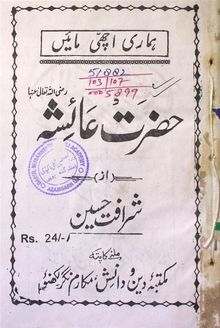 ہماری اچھی مائیں
51882
103/107
0005899
رضی اللہ تعالیٰ عنہا
حضرت عائشہؓ
(از)
شرافت حسین
Rs. 24/-
ملنے کا پتہ
مکتبۂ دین و دانش، مکارم نگر لکھنؤ